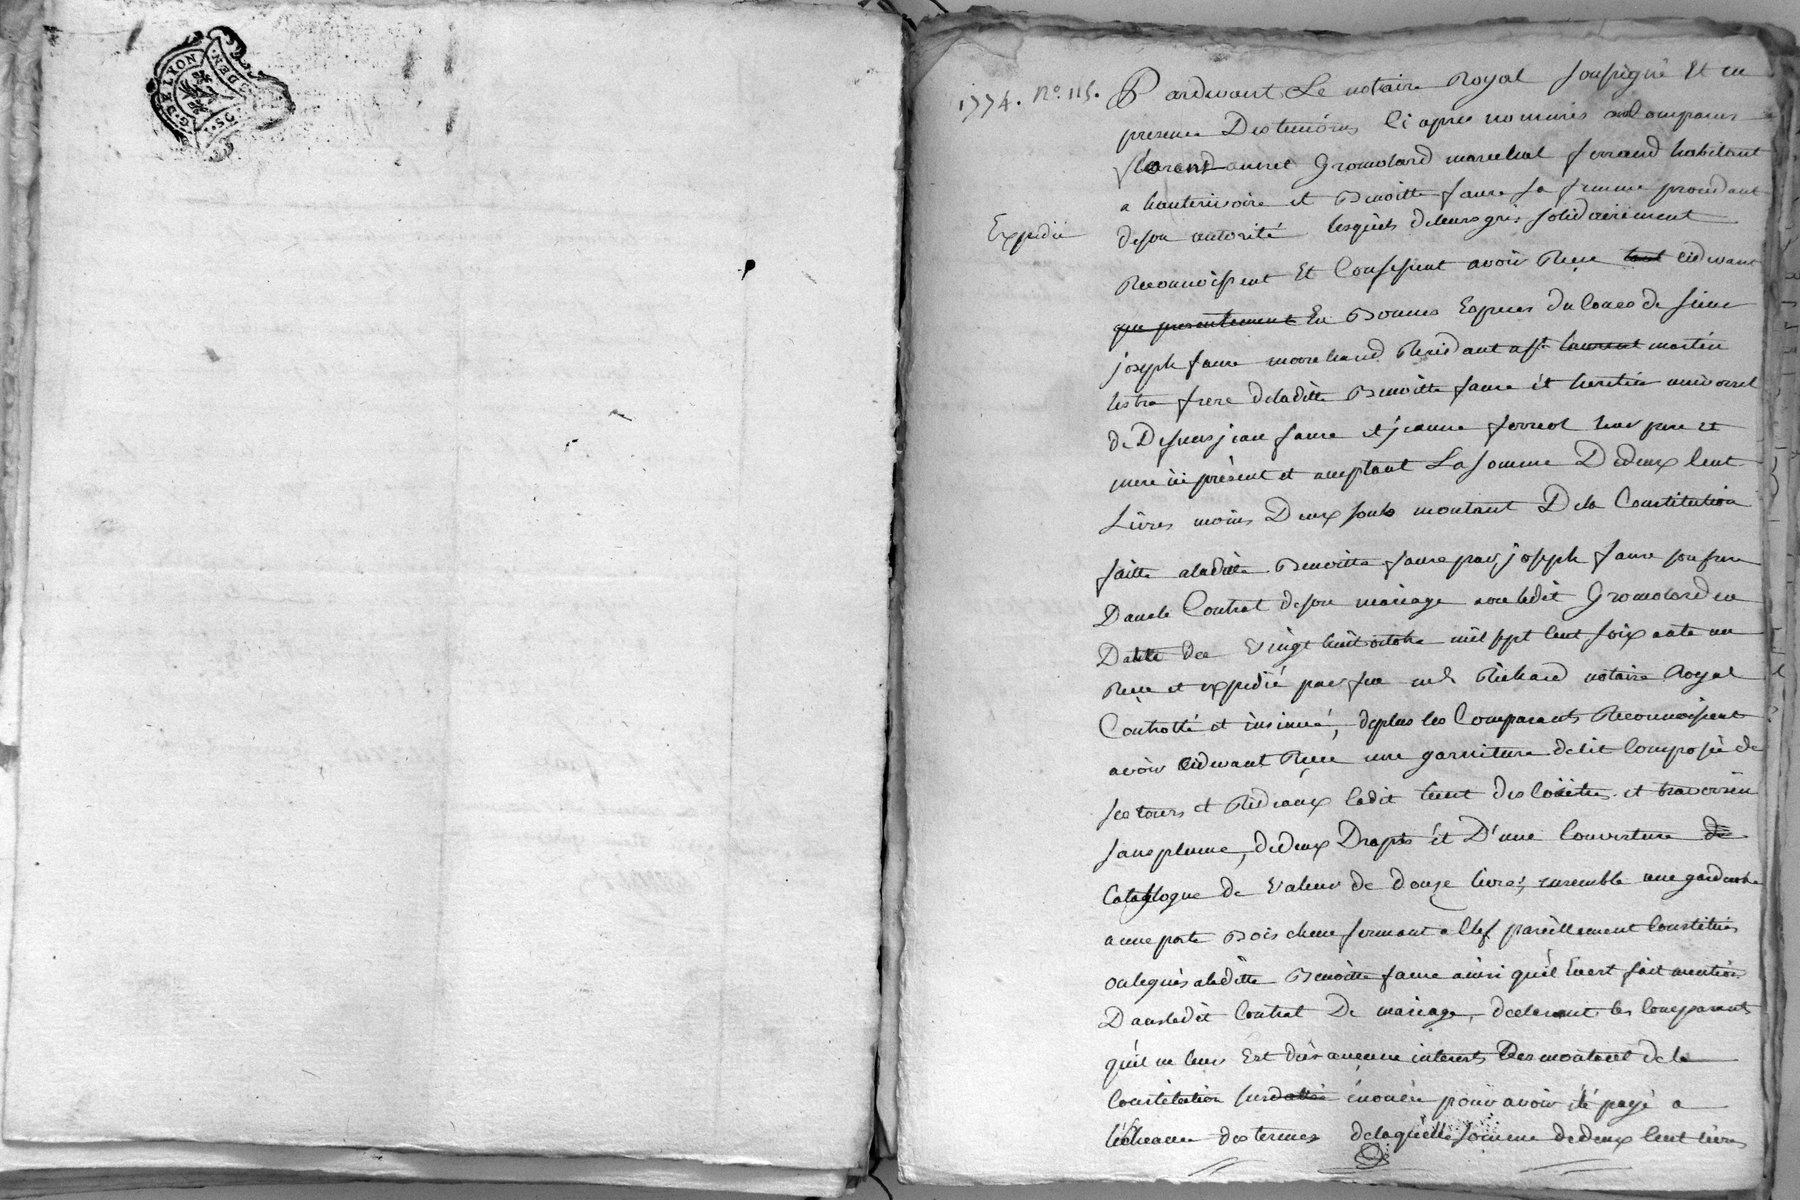 G. DE LYON
DEN.
DS.
1774. N°. 115.
Pardevant Le notaire Royal soussigné Et en
presence Des temoins Ci apres nommés comparurent
gromolard marechal ferrand habitant
a hauterivoire et Benoitte faure sa femme procedant
Expedié
de son autorité lesquels de leurs gré solidairement
Reconnoissent Et Confessent avoir Receu tant cidevant
que presentement En Bonnes Especes du Cours de sieur
joseph faure marchand Residant a st. laurent martin
lestra frere de laditte Benoitte faure et heritier universel
de Defunts jean faure et jeanne leur pere et
mere ici présent et acceptant La somme De deux Cent
Livres moins Deux souls montant De la Constitution
faitte a laditte Benoitte faure par joseph faure son frere
Dans le Contrat de son mariage avec ledit Gromolard en
Datte du vingt huit octobre mil sept Cent soixante un
Receu et expedié par feu me Richard notaire Royal
Controllé et insinué, de plus les Comparants Reconnoissent
avoir cidevant Receu une garniture de lit Composée de
ses tours et Rideaux ledit et traversin
sans plume, de deux Draps et D'une Couverture de
Catalogne de valeur de douze livres, ensemble une garderobe
a une porte Bois chene fermant a Clef pareillement Constitués
a laditte Benoitte faure ainsi qu'il En est fait mention
Dans ledit Contrat De mariage, declarant les Comparants
qu'il ne leur Est dus aucuns interests Des montant de la
Constitution susditte pour avoir été payé a
l'écheance des termes de laquelle somme de deux Cent livres